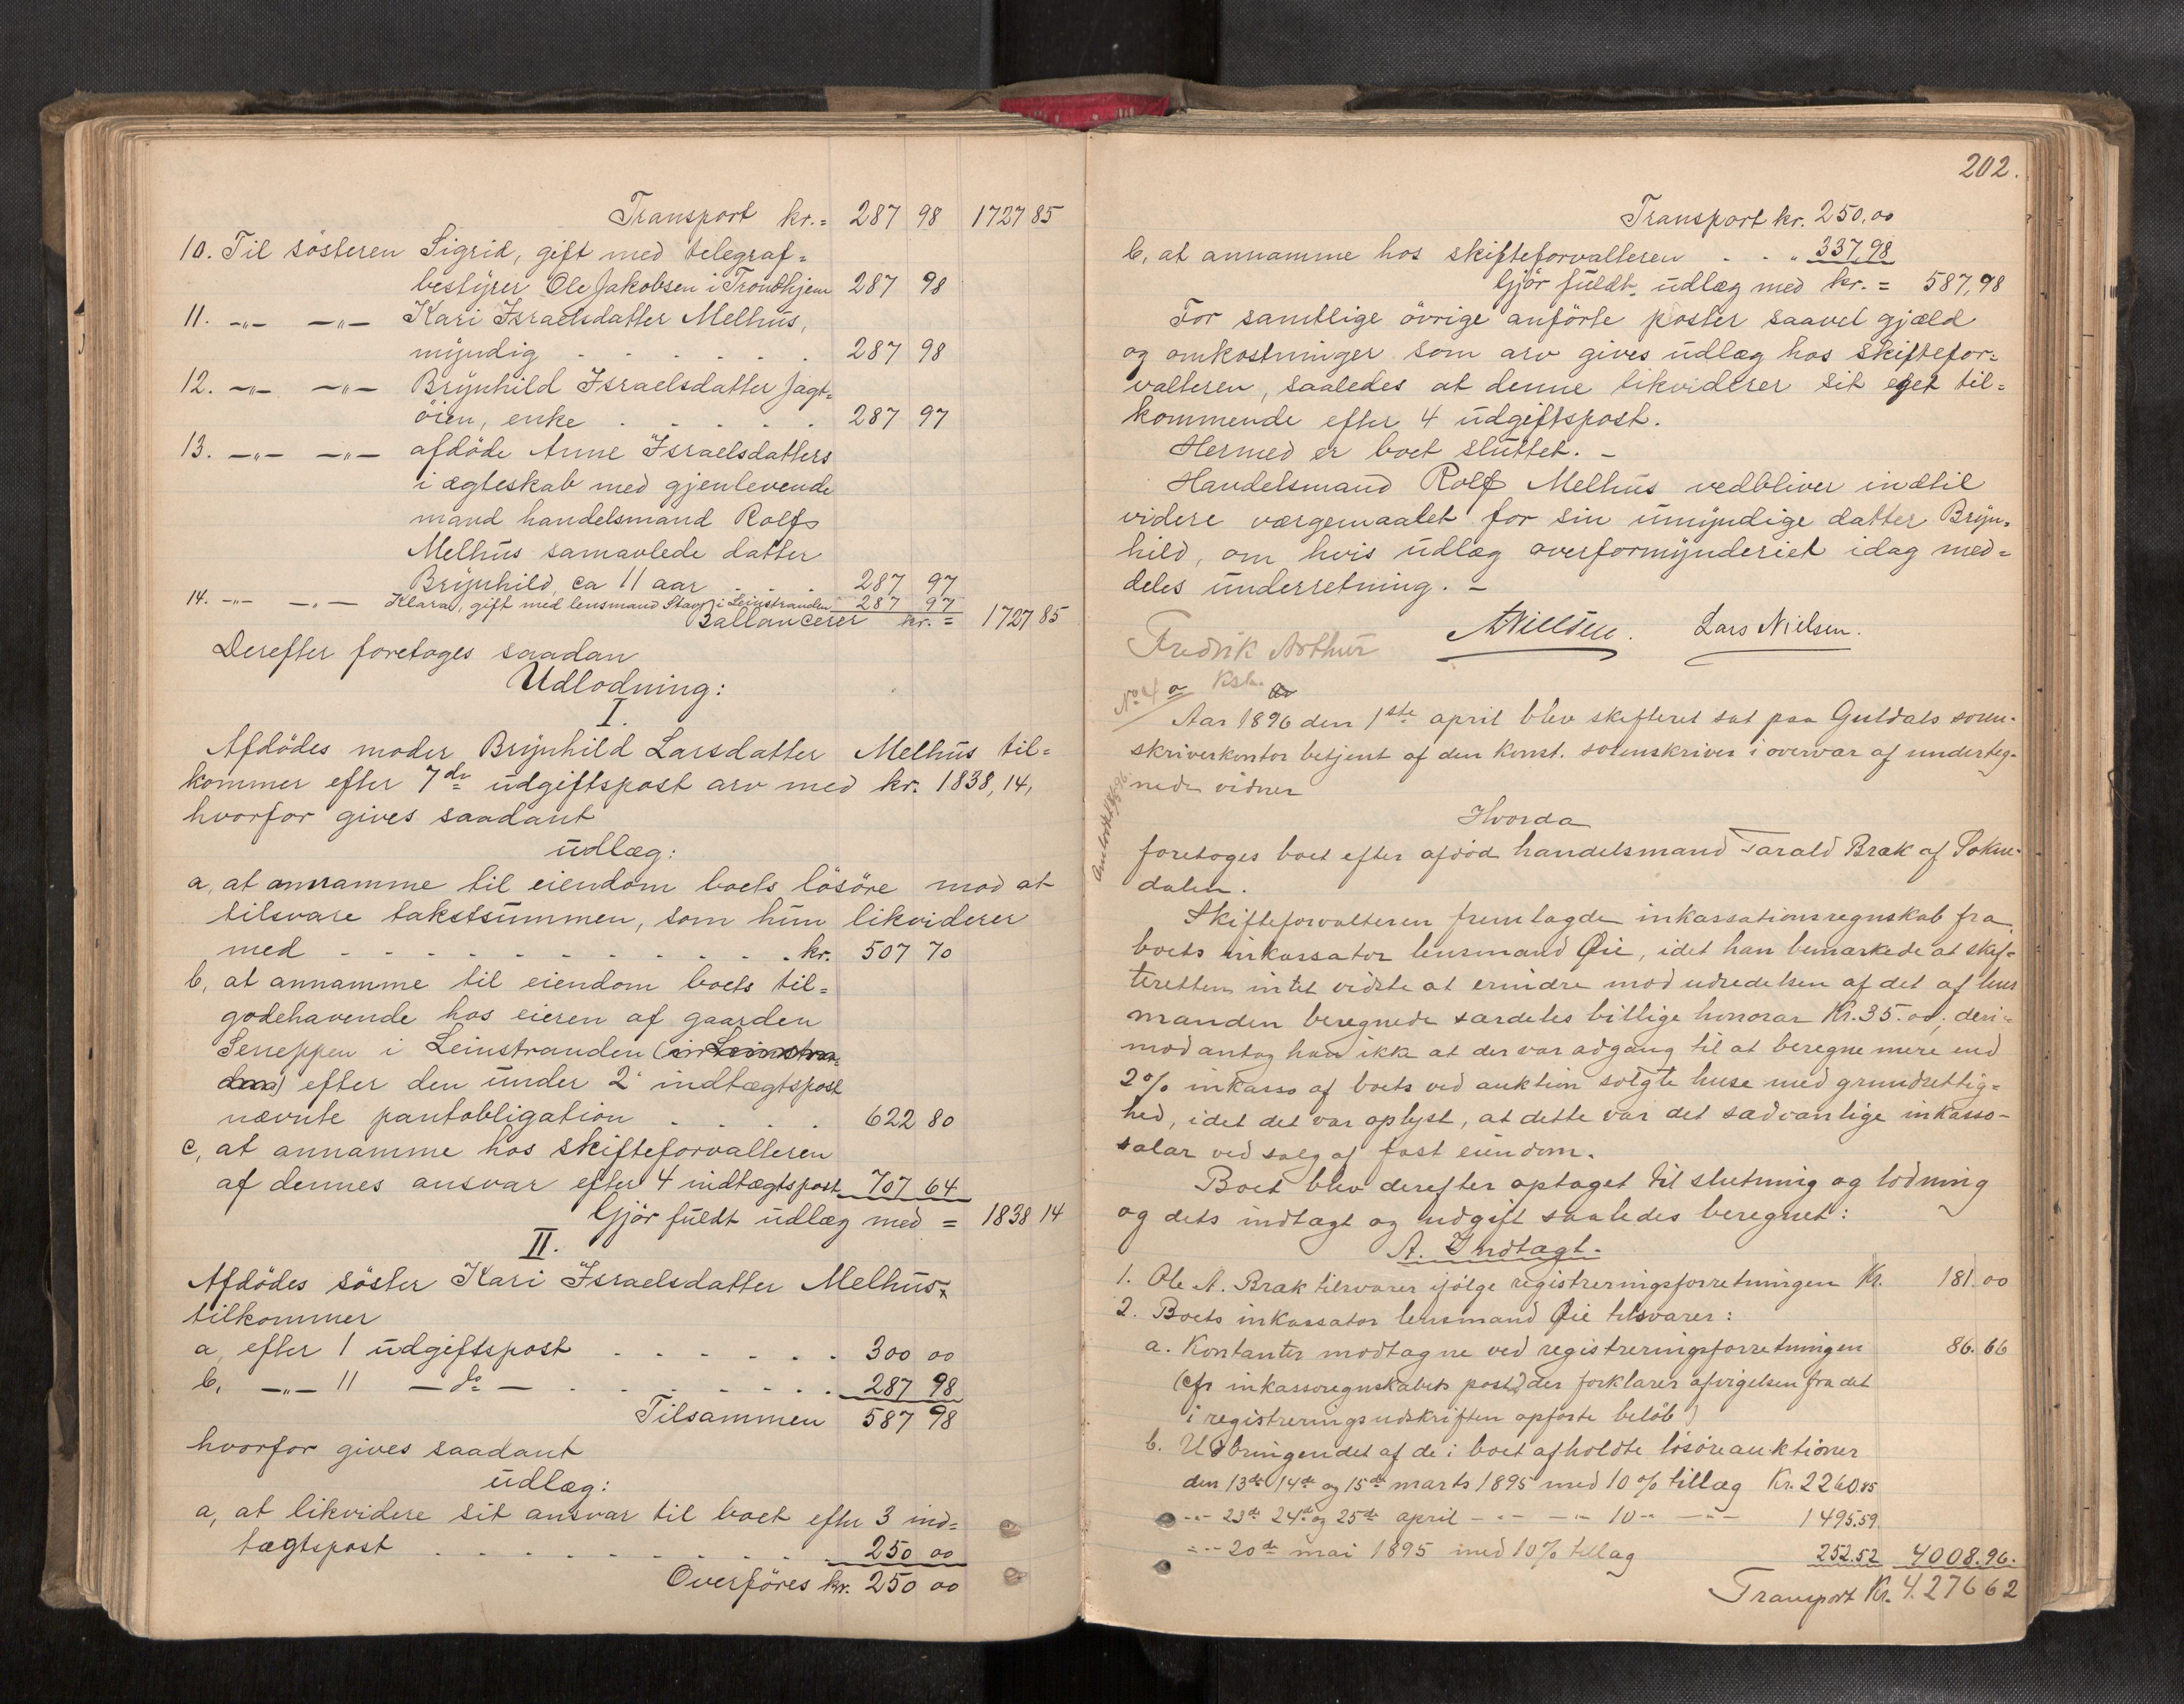 Transport kr. = 287 98 1727 85
10. Til sösteren Sigrid, gift med telegraf=
bestyrer Ole Jakobsen i Trondhjem 287 98
11. -"- -"- Kari Israelsdatter Melhus,
myndig . . . . . . 287 98
12. -"- -"- Brynhild Israelsdatter Jagt=
öien, enke . . . . . 287 97
13. -"- -"- afdöde Anne Israelsdatters
i ægteskab med gjenlevende
mand handelsmand Rolfs
Melhus samavlede datter
Brynhild, ca 11 aar . . . 287 97
14. -"- -"- Klara, gift med lensmand Stav i Leinstranden 287 97
Ballancerer kr. = 1727 85
Derefter foretages saadan
Udlodning:
I.
Afdödes moder Brynhild Larsdatter Melhus til=
kommer efter 7de udgiftspost arv med kr. 1838,14,
hvorfor gives saadant
udlæg:
a, at annamme til eiendom boets lösöre mod at
tilsvare takstsummen, som hun likviderer
med . . . . . . . . . . kr. 507 70
b, at annamme til eiendom boets til=
godehavende hos eieren af gaarden
Seneppen i Leinstranden (i Leinstran=
den) efter den under 2. indtægtspost
nævnte pantobligation . . . . . 622 80
c, at annamme hos skifteforvalteren
af dennes ansvar efter 4 indtægtspost 707 64
Gjör fuldt udlæg med = 1838 14
II.
Afdödes söster Kari Israelsdatter Melhus
tilkommer
a, efter 1 udgiftspost . . . . . . 300 00
b, -"- 11 - do - . . . . . . . 287 98
Tilsammen 587 98
hvorfor gives saadant
udlæg:
a, at likvidere sit ansvar til boet efter 3 ind=
tægtspost . . . . . . . . . 250 00
Overföres kr. 250 00
202.
Transport kr. 250,00
b, at annamme hos skifteforvalteren . . " 337,98
Gjör fuldt udlæg med kr. = 587,98
For samtlige övrige anförte poster saavel gjæld
og omkostninger som arv gives udlæg hos skiftefor=
valteren, saaledes at denne likviderer sit eget til=
kommende efter 4 udgiftspost.
Hermed er boet sluttet. -
Handelsmand Rolf Melhus vedbliver indtil
videre værgemaalet for sin umyndige datter Bryn=
hild, om hvis udlæg overformynderiet idag med=
deles underretning. -
Fredrik Arthur
ANielsen. Lars Nielsen.
No 4 a
Aar 1896 den 1ste april blev skifteret sat paa Guldals soren-
skriverkontor betjent af den konst. sorenskriver i overvær af underteg-
nede vidner
Hvorda
foretoges boet efter afdöd handelsmand Tarald Bræk af Sokne-
dalen.
Skifteforvalteren fremlagde inkassationsregnskab fra
boets inkassator lensmand Øie, idet han bemærkede at skif=
teretten intet vidste at erindre mod udredelsen af det af lens
manden beregnede særdeles billige honorar Kr. 35.00, deri=
mod antog han ikke at der var adgang til at beregne mere end
2% inkasso af boets ved auktion solgte huse med grundrettig=
hed, idet det var oplyst, at dette var det sædvanlige inkasso-
salær ved salg af fast eiendom.
Boet blev derefter optaget til slutning og lodning
og dets indtægt og udgift saaledes beregnet:
A. Indtægt.
1. Ole A. Bræk tilsvarer ifölge registreringsforretningen Kr. 181.00
2. Boets inkassator lensmand Øie tilsvarer:
a. Kontanter modtagne ved registreringsforretningen 86.66
(cfr inkassoregnskabets post 2, der forklarer afvigelsen fra det
i registreringsudskriften opförte belöb)
b. Udbringendet af de i boet afholdte lösöreauktioner
den 13de 14de og 15de marts 1895 med 10% tillæg Kr. 2260.85
-"- 23de 24de og 25de april -"- -"- 10 -"- -"- 1495.59
-"- 20de mai 1895 med 10% tillæg 252.52 4008.96.
Transport Kr. 4.276 62